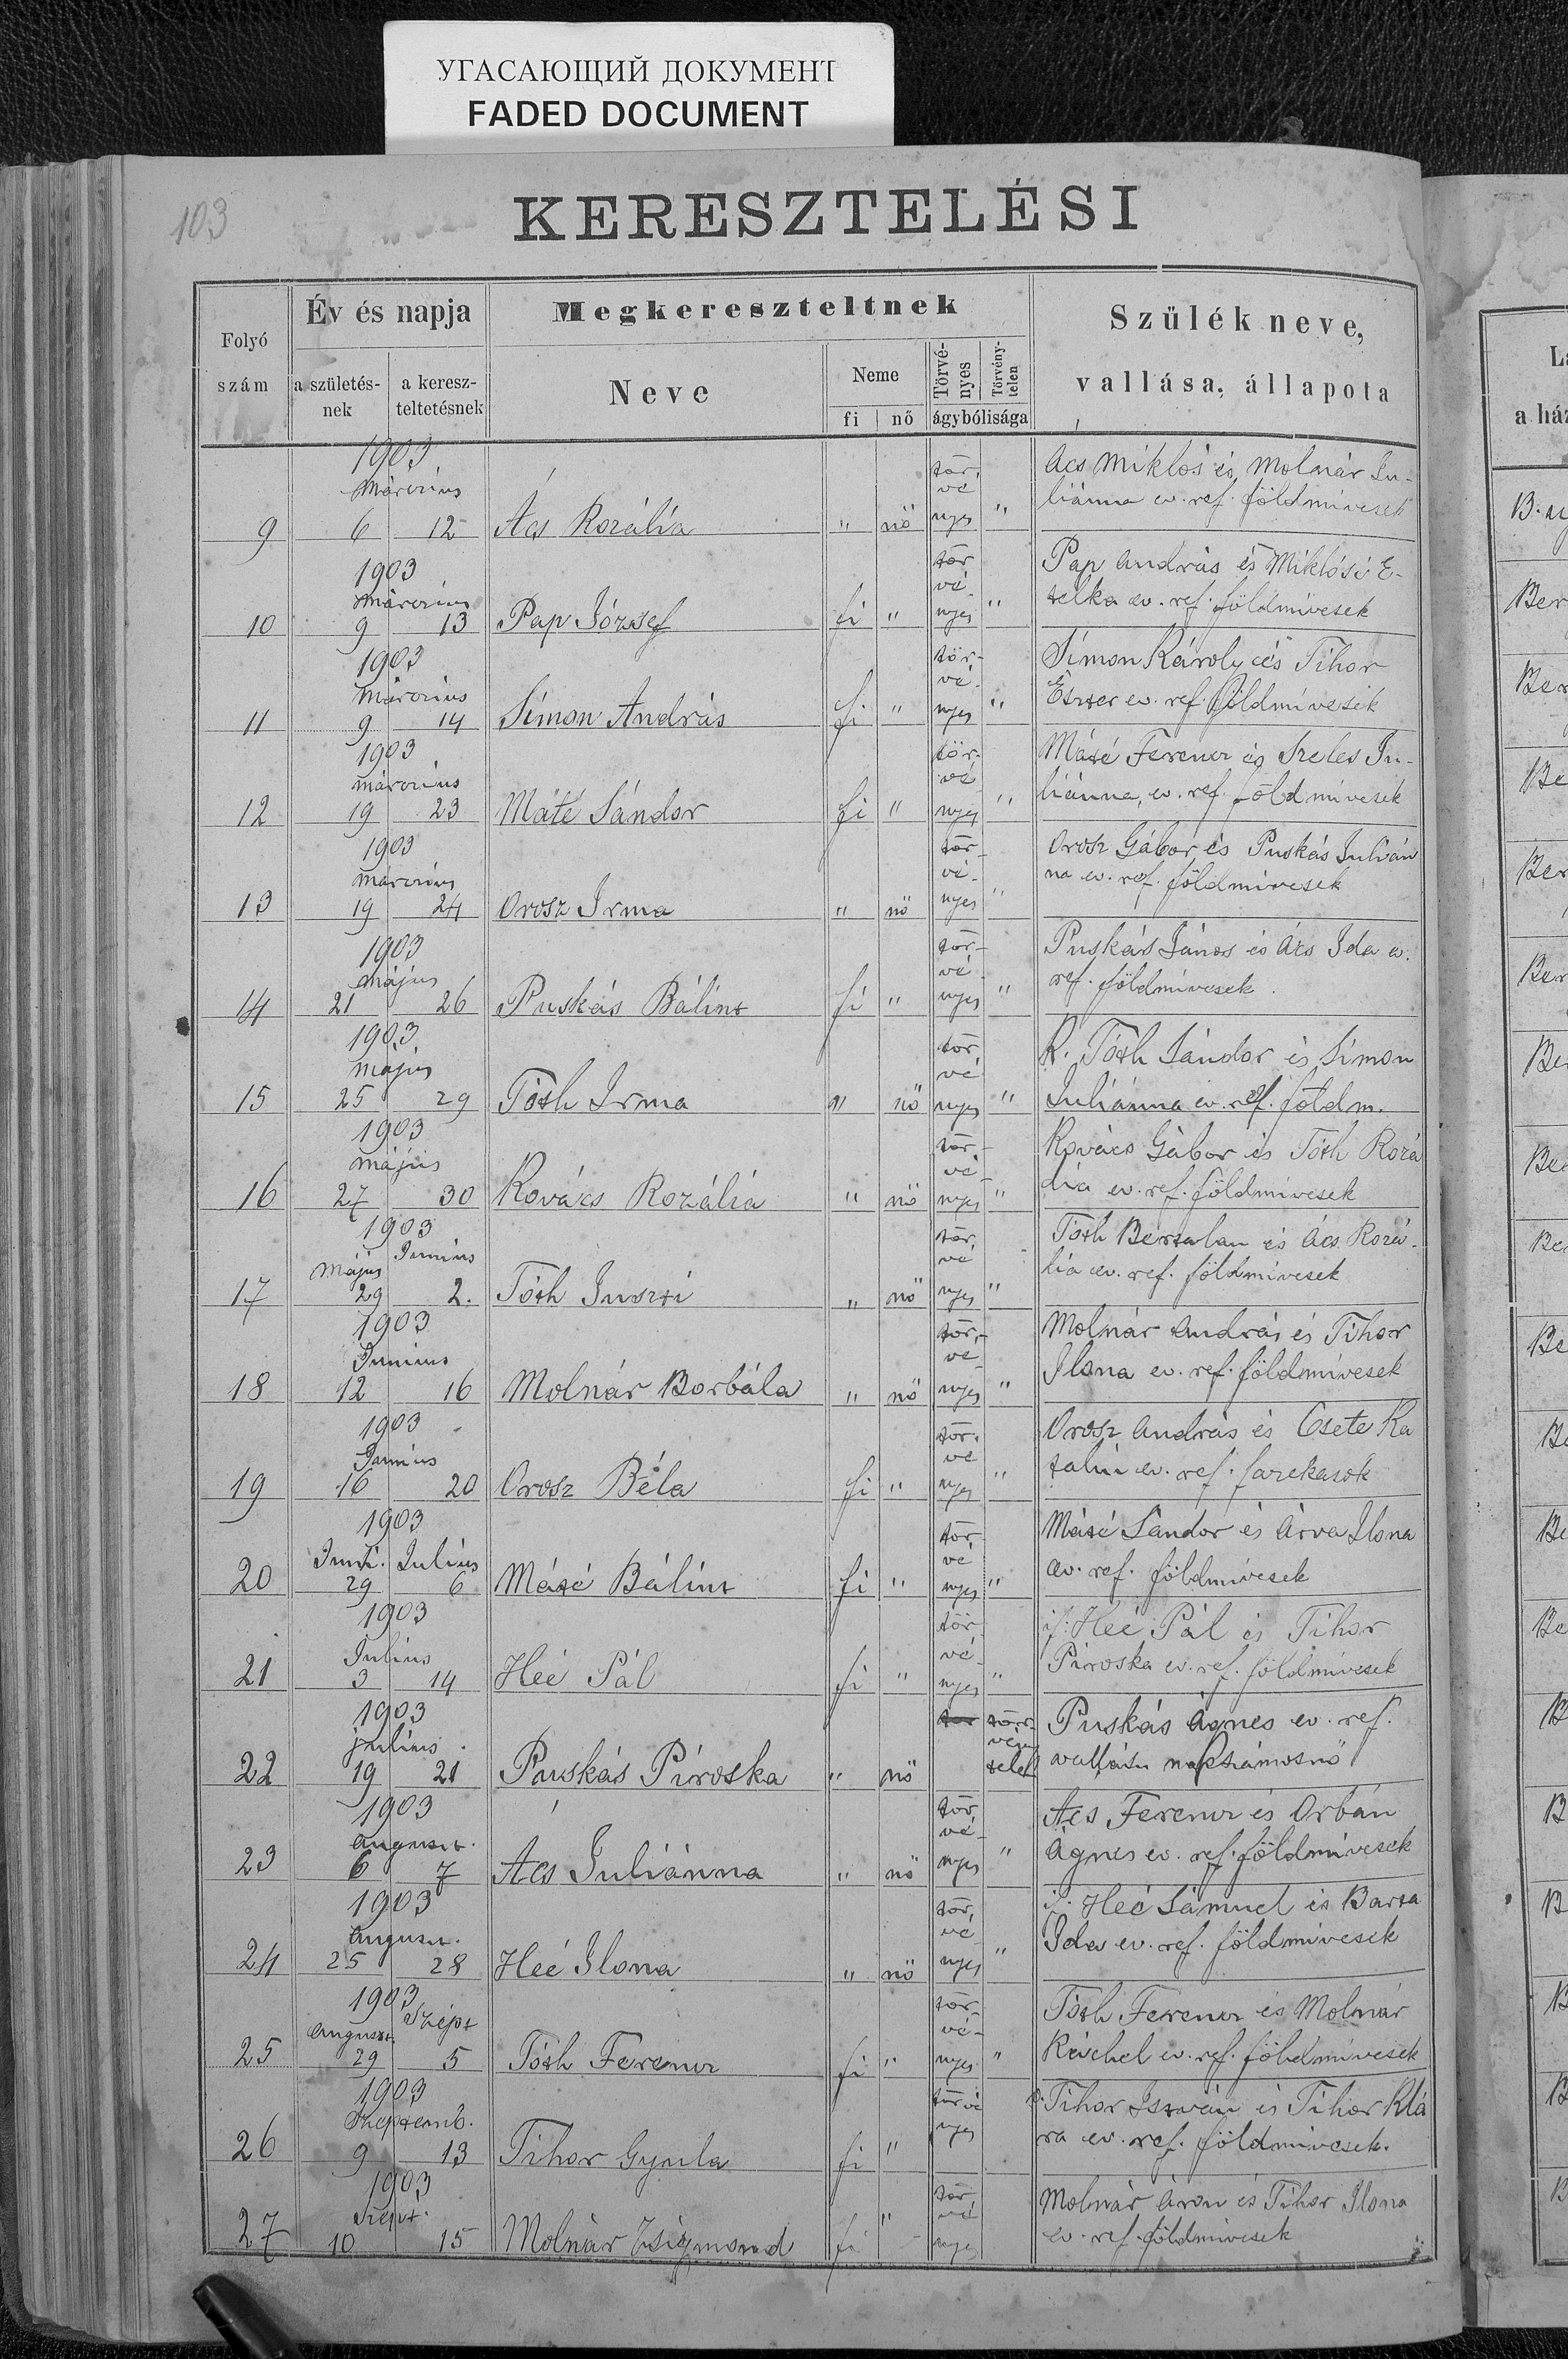 УГАСАЮЩИЙ ДОКУМЕНТ
FADED DOCUMENT
103
KERESZTELÉSI
Folyó szám
Év és napja
a születés-
nek
a keresz-
teltetésnek
Megkereszteltnek
Neve
Neme
fi nő
Törvé-
nyes
Törvény-
telen
ágybólisága
Szülék neve,
vallása, állapota
1903
márczius
9 6 12 Ács Rozália " nő tör,
vé
nyes "
Ács Miklós és Molnár Ju-
liánna ev. ref. földmívesek
1903
márczius
10 9 13 Pap József fi " tör
vé-
nyes "
Pap András és Miklósi E-
telka ev. ref. földmívesek
1903
márczius
11 9 14 Simon András fi " tör-
vé-
nyes "
Simon Károly és Tihor
Eszter ev. ref. földmívesek
1903
márczius
12 19 23 Máté Sándor fi " tör-
vé
nyes "
Máté Ferencz és Szeles Ju-
liánna, ev. ref. földmívesek
1903
márczius
13 19 24 Orosz Irma " nő tör-
vé-
nyes "
Orosz Gábor és Puskás Julián
na ev. ref. földmívesek
1903
május
14 21 26 Puskás Bálint fi " tör-
vé-
nyes "
Puskás János és Ács Ida ev.
ref. földmívesek.
1903
május
15 25 29 Tóth Irma " nő tör
vé
nyes "
K. Tóth Sándor és Simon
Juliánna ev. ref. földm.
1903
május
16 27 30 Kovács Rozália " nő tör-
vé-
nyes "
Kovács Gábor és Tóth Rozá
lia ev. ref. földmívesek
1903
Május Junius
17 29 2. Tóth Juszti " nő tör
vé
nyes "
Tóth Bertalan és Ács Rozá-
lia ev. ref. földmívesek
1903
Junius
18 12 16 Molnár Borbála " nő tör-
vé-
nyes "
Molnár András és Tihor
Ilona ev. ref. földmívesek
1903
Junius
19 16 20 Orosz Béla fi " tör.
vé
nyes "
Orosz András és Csete Ka
talin ev. ref. fazekasok
1903
Juni. Julius
20 29 6 Máté Bálint fi " tör-
vé
nyes "
Máté Sándor és Árva Ilona
ev. ref. földmívesek
1903
Julius
21 3 14 Heé Pál fi " tör
vé-
nyes "
if. Heé Pál és Tihor
Piroska ev. ref. földmívesek
1903
julius.
22 19 21 Puskás Piroska " nő tör törr-
vény
telen
Puskás Ágnes ev. ref.
vallásu napszámosnő
1903
auguszt.
23 6 7 Ács Juliánna " nő tör
vé-
nyes "
Ács Ferencz és Orbán
Ágnes ev. ref. földmívesek
1903
auguszt.
24 25 28 Heé Ilona " nő tör,
vé
nyes "
if. Heé Sámuel és Barta
Ida ev. ref. földmívesek
1903
auguszt. Szept
25 29 5 Tóth Ferencz fi " tör
vé-
nyes "
Tóth Ferencz és Molnár
Ráchel ev. ref. földmívesek
1903
Szeptemb.
26 9 13 Tihor Gyula fi " törvé
nyes
Tihor István és Tihor Klá
ra ev. ref. földmívesek.
1903
Szept.
27 10 15 Molnár Zsigmond fi " tör-
vé
nyes
Molnár Áron és Tihor Ilona
ev. ref. földmívesek